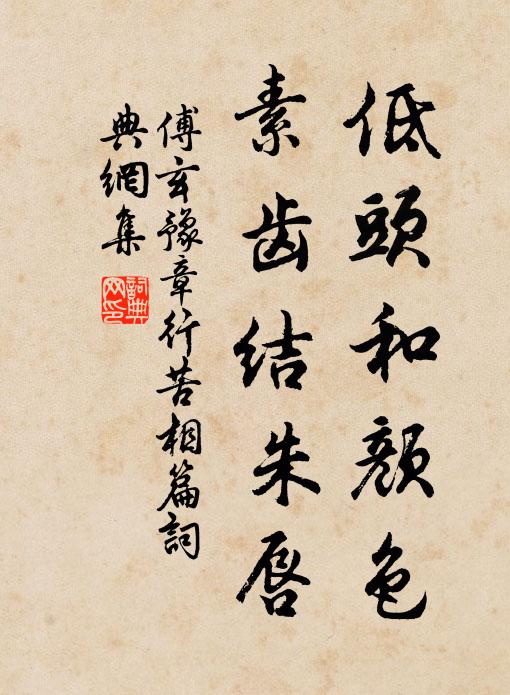 低頭和顔色
素齿结朱唇
傅玄豫章行苦相篇詞
典網集
詞典网印